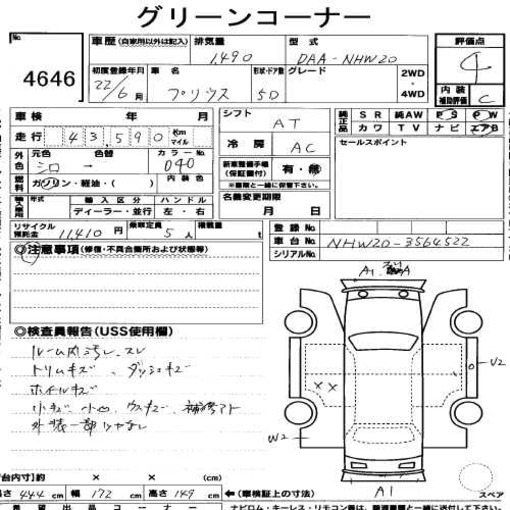 グリーンコーナー
No.
4646
車歴(自家用以外は記入)
排気量
1490
型式
DAA-NHW20
評価点
4
初度登録年月
22/6月
車名
プリウス
形状・ドア数
5D
グレード
2WD・4WD
内装補助評価
C
車検 年 月
シフト
AT
純正品
SR 純AW PS PW
カワ TV ナビ エアB
走行
43,590
Km
マイル
冷房
AC
セールスポイント
外色
元色
シロ
色替
カラーNo.
040
燃料
ガソリン・軽油・( )
内装色
新車整備手帳(保証書付)
有・無
※書類と一緒に保管下さい。
輸入車
年式
輸入区分
ディーラー・並行
ハンドル
左・右
名義変更期限
月 日
リサイクル預託金
11,410円
乗車定員
5人
積載量
t
登録No.
車台No.
NHW20-3564522
シリアルNo.
◎注意事項(修復・不具合箇所および状態等)
A1
A
◎検査員報告(USS使用欄)
ルーム内汚レ、スレ
トリムキズ、ダッシュキズ
ホイルキズ
小キズ、小凹、ウスキズ、補修アト
XX
U2
W2
A1
スペア
荷台内寸(約) × × (cm)
長さ 444cm 幅 172cm 高さ 149cm
←(車検証上の寸法)
希望出品コーナー
ナビロム・キーレス・リモコン類は、書類書類と一緒に提出してください